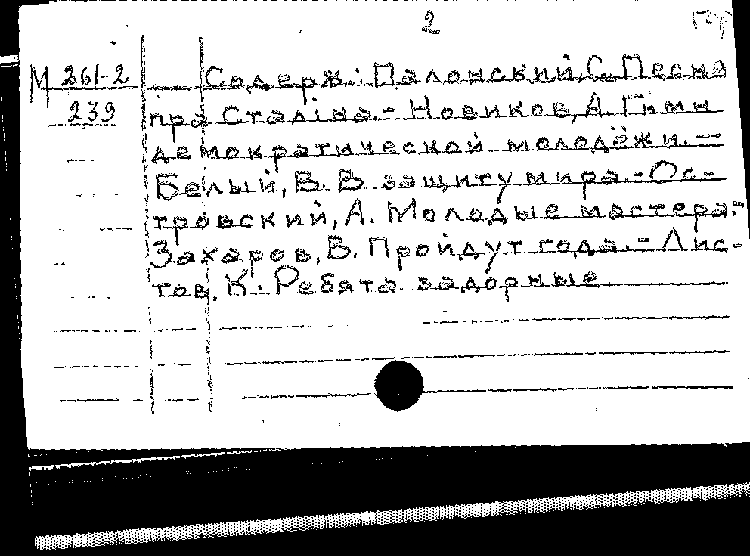 2
М 261-2 Содерж.: Палонский, С. Песня
239 пра Сталіна. - Новиков, А. Гимн
демократической молодёжи. -
Белый, В. В защиту мира. - Ос-
тровский, А. Молодые мастера. -
Захаров, В. Пройдут года. - Лис-
тов, К. Ребята задорные